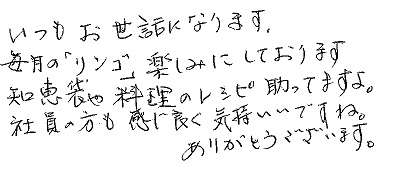 いつもお世話になります。
毎月の「リンゴ」楽しみにしております
知恵袋や料理のレシピ助ってますよ。
社員の方も感じ良く気持いいですね。
ありがとうございます。